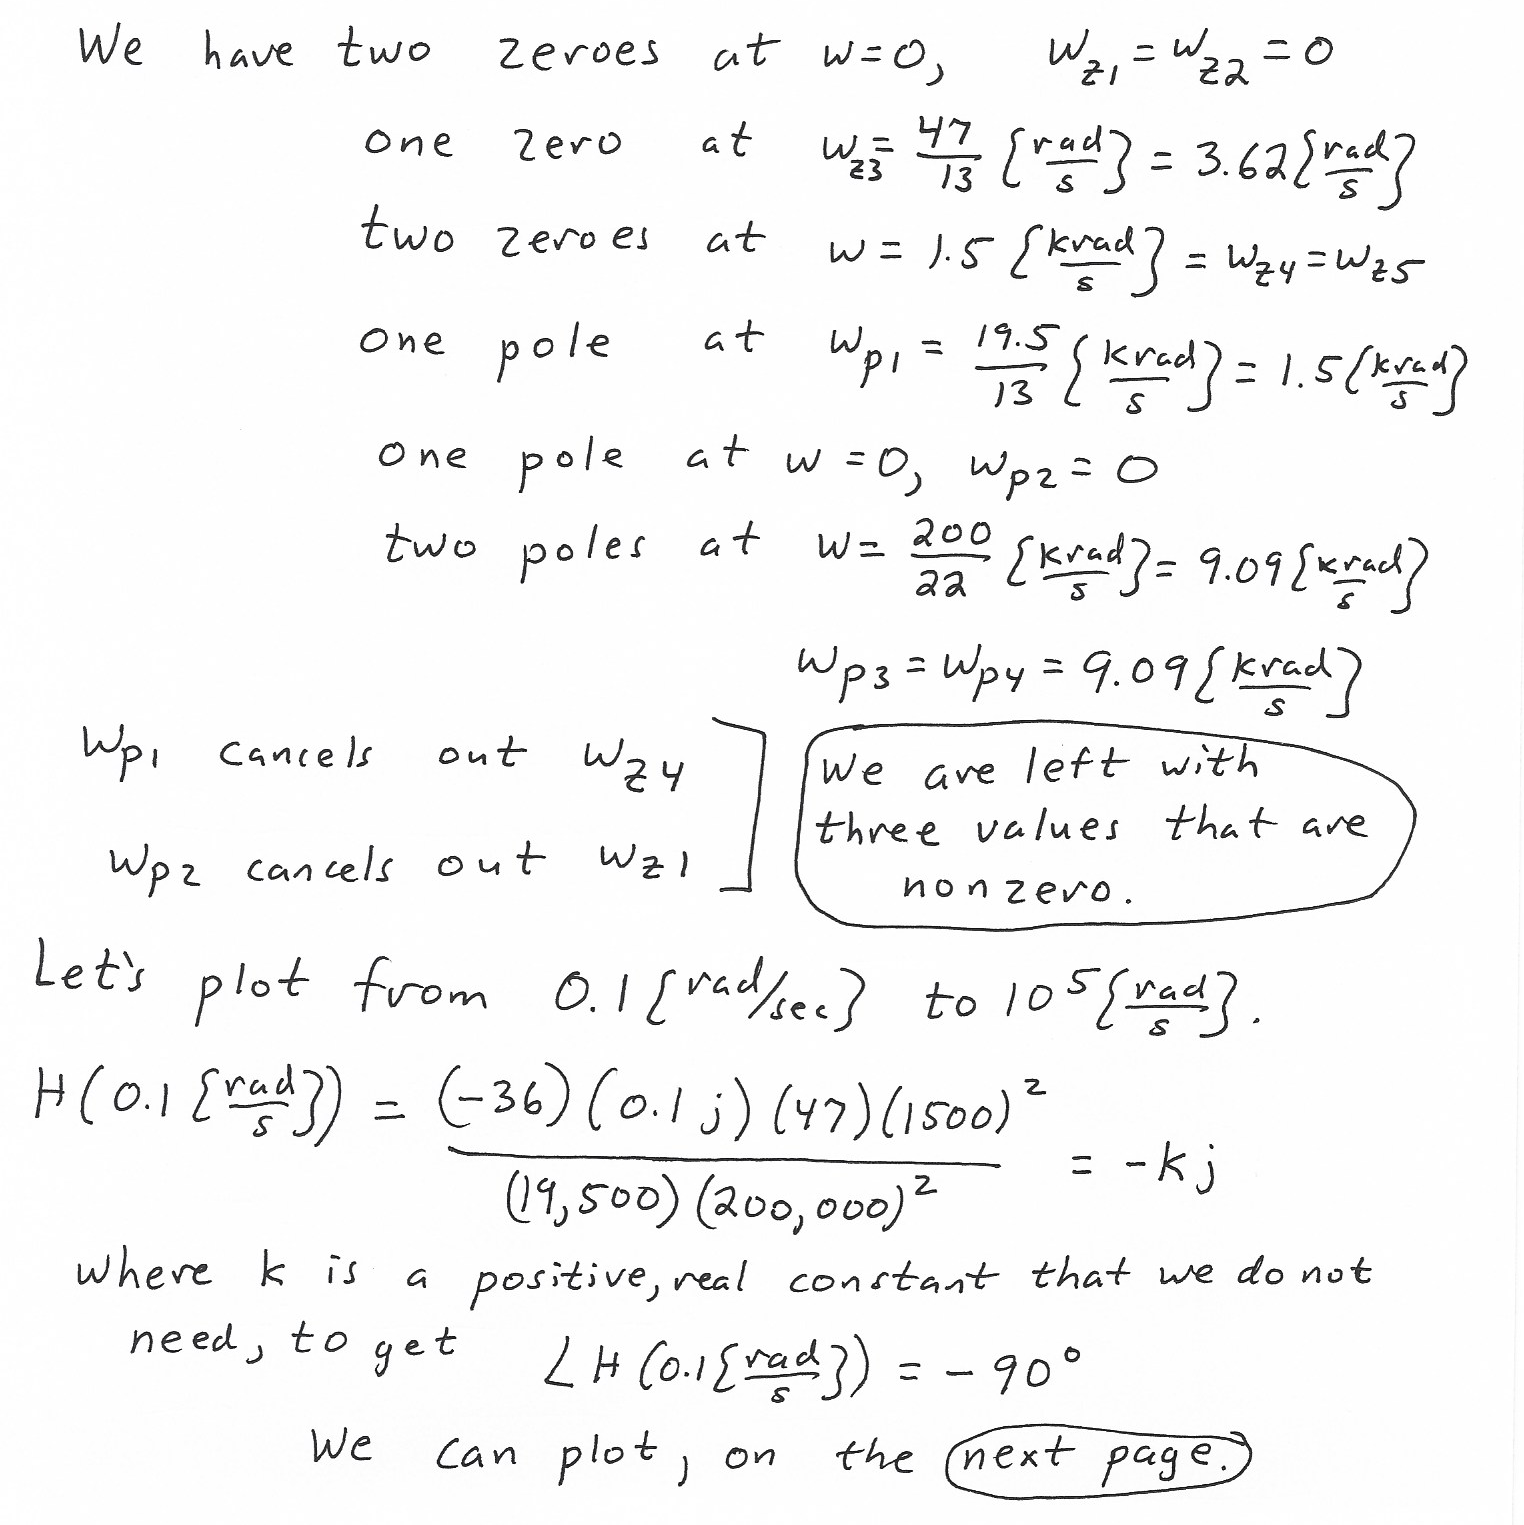 We have two zeroes at w=0, w_z1 = w_z2 = 0
one zero at w_z3 = 47/13 {rad/s} = 3.62 {rad/s}
two zeroes at w = 1.5 {krad/s} = w_z4 = w_z5
one pole at w_p1 = 19.5/13 {krad/s} = 1.5 {krad/s}
one pole at w = 0, w_p2 = 0
two poles at w = 200/22 {krad/s} = 9.09 {krad/s}
w_p3 = w_p4 = 9.09 {krad/s}
w_p1 cancels out w_z4
w_p2 cancels out w_z1
We are left with
three values that are
nonzero.
Let's plot from 0.1 {rad/sec} to 10^5 {rad/s}.
H(0.1 {rad/s}) = (-36)(0.1j)(47)(1500)^2 / (19,500)(200,000)^2 = -kj
where k is a positive, real constant that we do not
need, to get ∠H(0.1{rad/s}) = -90°
We can plot, on the next page.